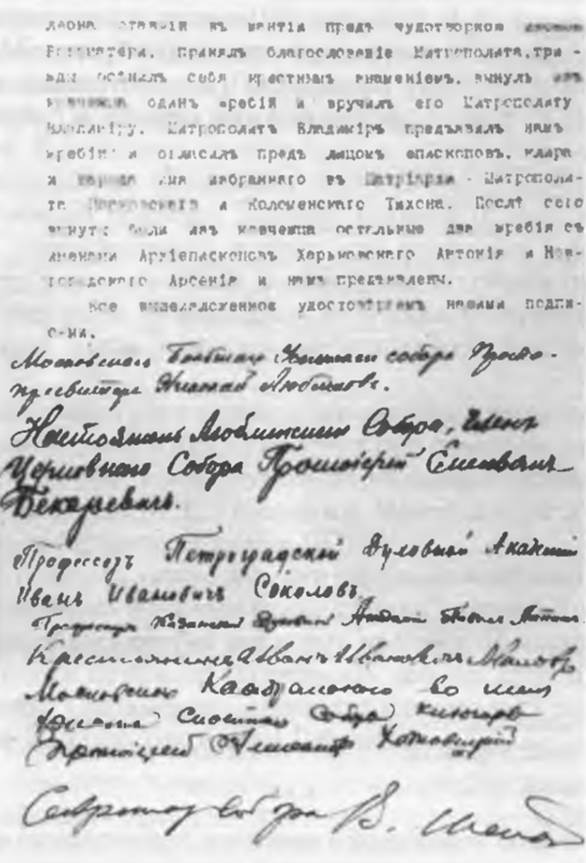 леона стоящій въ мантіи предъ чудотворною иконою
Богоматери, принялъ благословеніе Митрополита, три-
жды осѣнилъ себя крестнымъ знаменіемъ, вынулъ изъ
ковчежца одинъ жребій и вручилъ его Митрополиту
Владиміру. Митрополитъ Владиміръ предъявилъ намъ
жребій и огласилъ предъ лицомъ епископовъ, клира
и народа имя избраннаго въ Патріархи - Митрополи-
та Московскаго и Коломенскаго Тихона. Послѣ сего
вынуты были изъ ковчежца остальные два жребія съ
именами Архіепископовъ Харьковскаго Антонія и Нов-
городскаго Арсенія и намъ предъявлены.
Все вышеизложенное удостовѣряемъ нашими подпи-
сями.
Московскаго Большаго Успенскаго собора Прото-
пресвитеръ Николай Любимовъ.
Настоятель Собора, Членъ
Церковнаго Собора Протоіерей
Бекаревичъ.
Профессоръ Петроградской Духовной Академіи
Иванъ Ивановичъ Соколовъ.
Профессоръ Казанской Духовной Академіи
Крестьянинъ Иванъ Ивановичъ
Московскаго Каѳедральнаго во имя
Христа Спасителя Собора ключарь
Протоіерей Александръ Хотовицкій
Секретарь собора В.